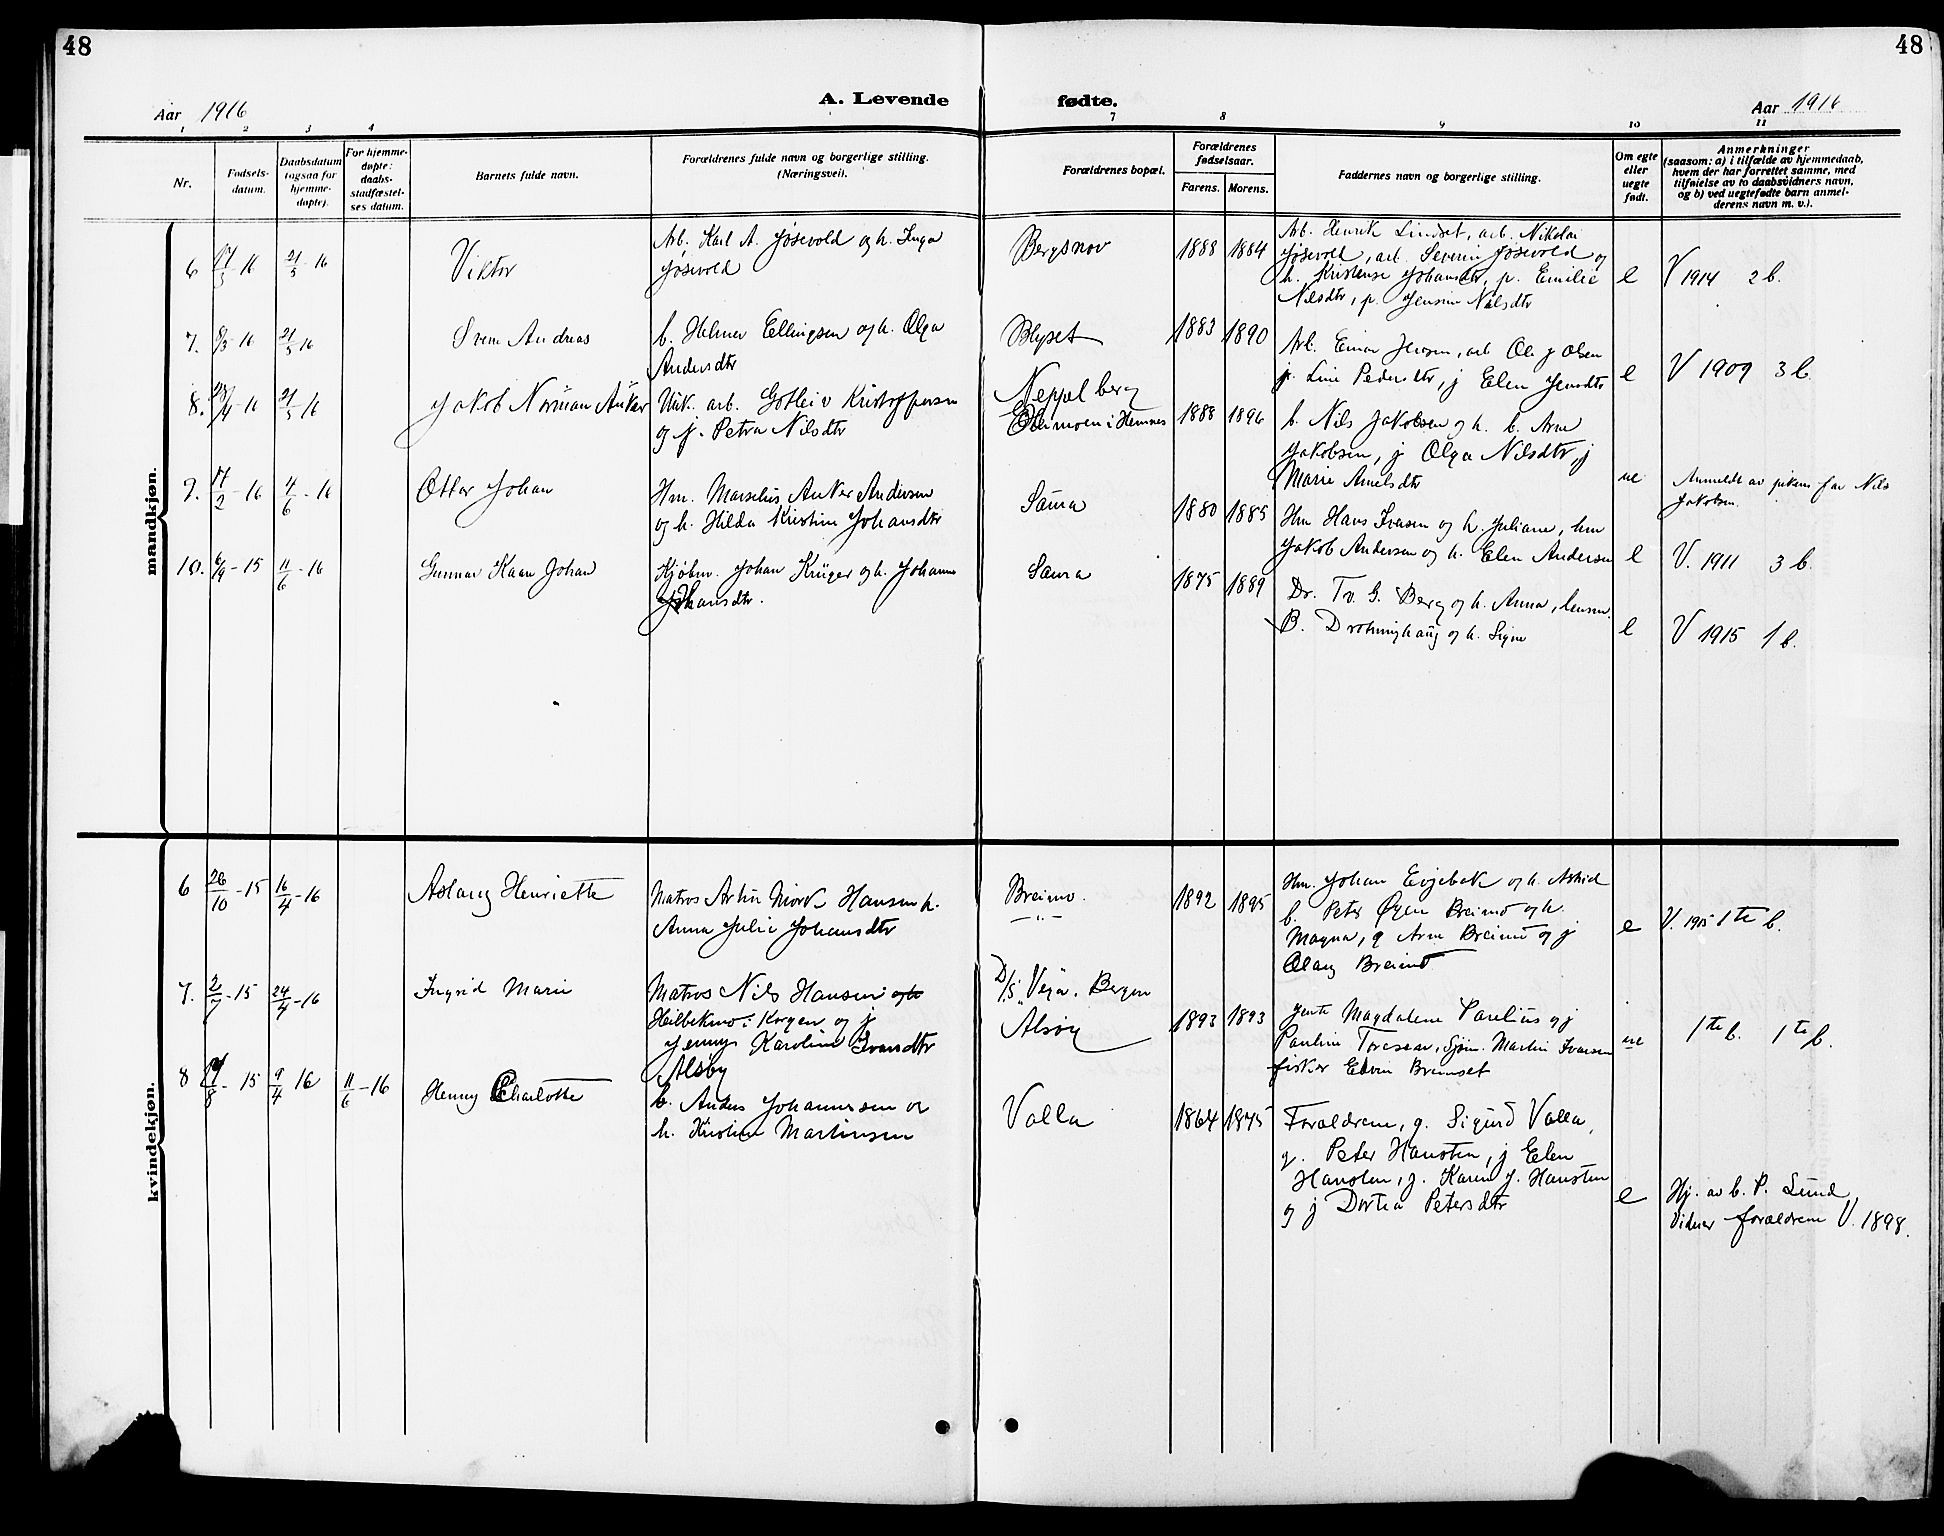 48
48
A. Levende fødte.
Aar 1916
Aar 1916
1 2 3 4 7 8 9 10 11
Nr.
Fødsels-
datum.
Daabsdatum
(ogsaa for
hjemme-
døpte).
For hjemme-
døpte:
daabs-
stadfæstel-
ses datum.
Barnets fulde navn.
Forældrenes fulde navn og borgerlige stilling.
(Næringsvei).
Forældrenes bopæl.
Forældrenes
fødselsaar.
Farens. Morens.
Faddernes navn og borgerlige stilling.
Om egte
eller
uegte
født.
Anmerkninger
(saasom: a) i tilfælde av hjemmedaab,
hvem der har forrettet samme, med
tilføielse av to daabsvidners navn,
og b) ved uegtefødte barn anmel-
derens navn m. v.).
mandkjøn.
6 16 21/5-16
Viktor
Arb. Karl A. Jøsevold og h. Inga
Jøsevold
Bergsnov
1888 1884
Arb. Henrik Lindset, arb. Nikolai
Jøsevold, arb. Severin Jøsevold og
h. Kristense Johansdtr, p. Emilie
Nilsdtr, p. Jensine Nilsdtr
e
V 1914 2 b.
7. 16 21/5 16
Svein Andreas
b. Helmer Ellingsen og h. Olga
Andersdtr
Blyset
1883 1890
Arb. Einar Jensen, arb Ole J Olsen
p. Line Pedersdtr, j Elen Jensdtr
e
V 1909 3 b.
8. 16 21/5 16
Jakob Norman Anker
Uük. arb. Gotleiv Kristoffersen
og j. Petra Nilsdtr
Neppelberg
i Hemnes
1888 1896
b. Nils Jakobsen og h. b. Arne
Jakobsen, j Olga Nilsdtr, j
Marie Arnelsdtr
ue
Anmeldt av pikens far Nils
Jakobsen.
9. 17/2-16 4/6-16
Ottar Johan
Hm. Marselius Anker Andersen
og h. Hilda Kristine Johansdtr
Saura
1880 1885
Hm Hans Ivarsen og h. Juliane, hm
Jakob Andersen og h. Elen Andersen
e
V. 1911 3 b.
10. 6/9-15 11/6-16
Gunnar Kaare Johan
Kjøbm. Johan Krüger og h. Johanne
Johansdtr.
Saura
1875 1889
Dr. Tv. G. Berg og h. Anna, lensm.
B. Drotninghaug og h. Signe
e
V 1915 1 b.
kvindekjøn.
6 26/10-15 16/4-16
Aslaug Henriette
Matros Artür Mørk Hansen h.
Anna Julie Johansdtr
Breimo.
-"-
1892 1895
Hm. Johan Evjebek og h. Astrid
b. Peter Øyen Breimo og h.
Magna, g Arne Breimo og j
Olaug Breimo
e
V. 1915 1te b.
7. 2/7-15 24/4-16
Ingrid Marie
Matros Nils Hansen og h
Heilbekmo i Korgen og j
Jenny Karoline Ivarsdtr
Alsøy
D/S "Vega". Bergen
Alsøy
1893 1893
Jente Magdalene Parelius og j
Pauline Toresen, Sjøm. Martin Ivarsen
fisker Edvin Breimset
ue
1te b. 1te b.
8 19/8-15 9/4 16 11/6-16
Henny Charlotte
b. Anders Johannesen og
h. Kirstine Martinsen
Valla
1864 1875
Forældrene, g. Sigurd Valla,
g. Peter Hansten, j Elen
Hansten, j. Karen J. Hansten
og j Dortea Petersdtr
e
Hj. av b. P. Lund,
Vidner forældrene V. 1898.